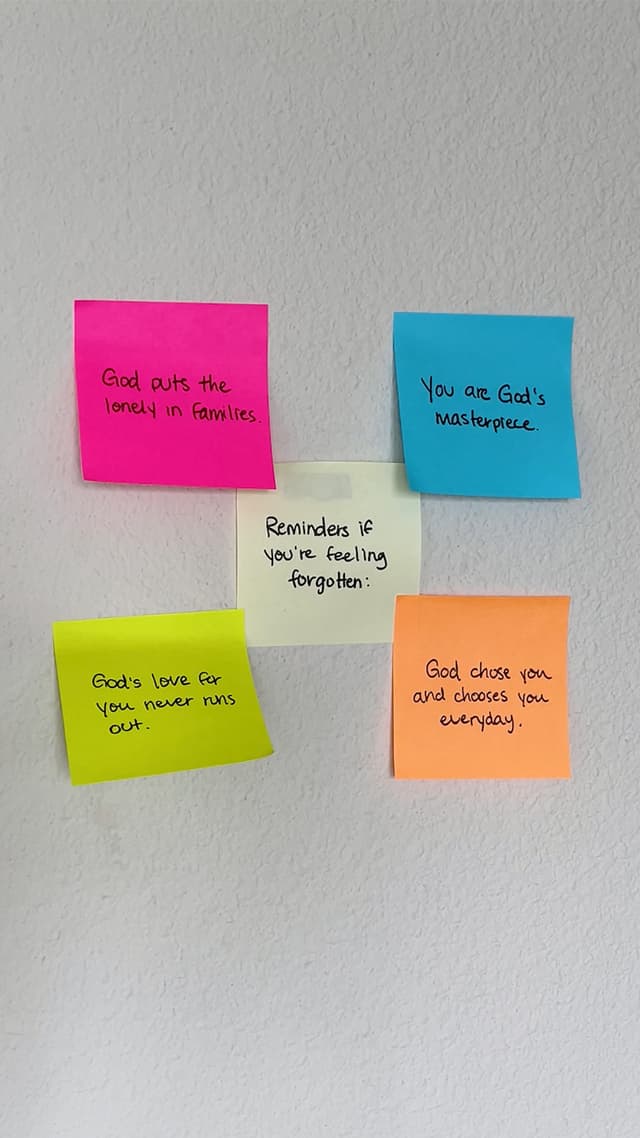 God puts the
lonely in families.
You are God's
masterpiece.
Reminders if
you're feeling
forgotten:
God's love for
you never runs
out.
God chose you
and chooses you
everyday.